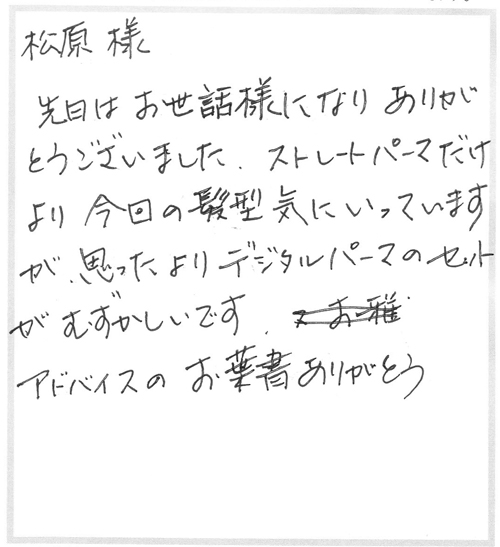 松原 様
先日は お世話様になり ありが
とうございました. ストレートパーマだけ
より 今回の髪型 気にいっています
が、思ったより デジタルパーマの セット
が むずかしいです.
アドバイスの お葉書 ありがとう